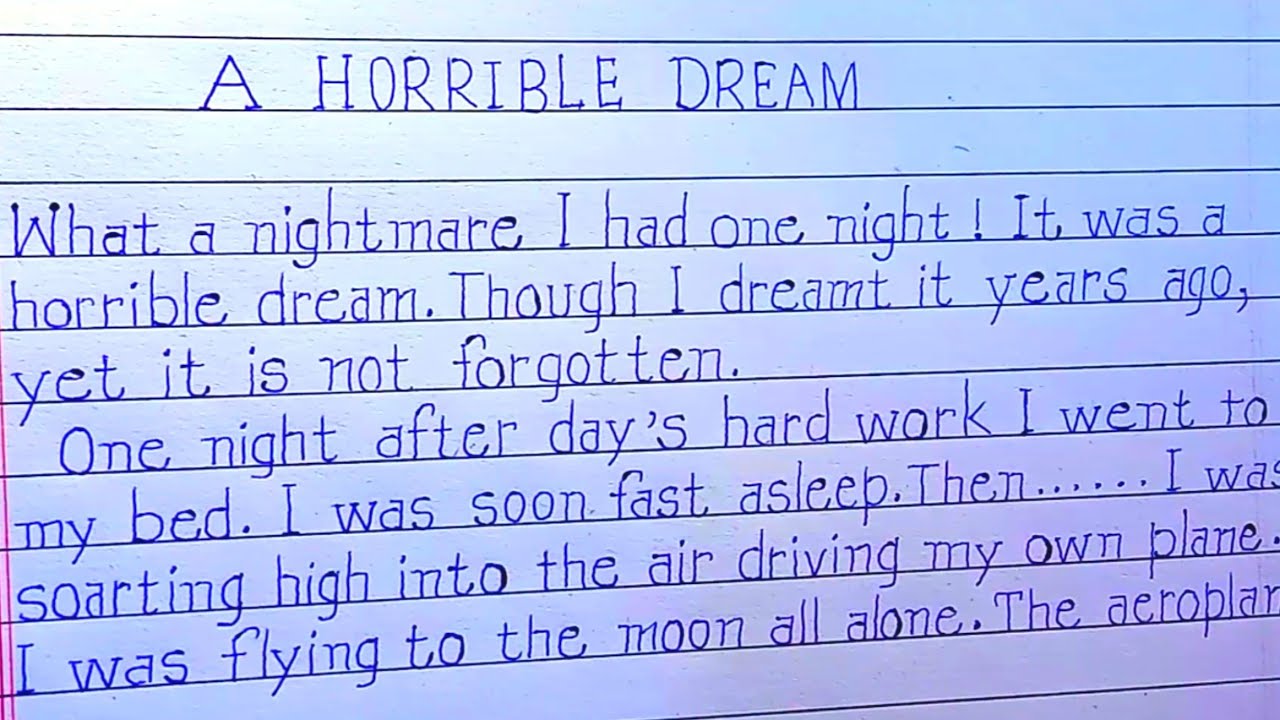 A HORRIBLE DREAM
What a nightmare I had one night! It was a
horrible dream. Though I dreamt it years ago,
yet it is not forgotten.
One night after day's hard work I went to
my bed. I was soon fast asleep. Then...... I was
soarting high into the air driving my own plane.
I was flying to the moon all alone. The aeroplan